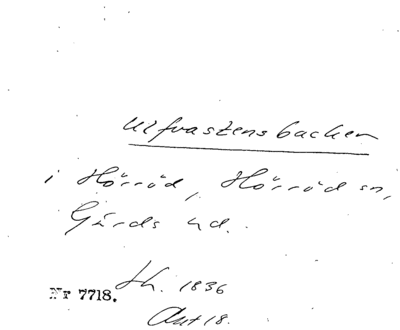 Ulfvastensbacken
i Hörröd, Hörröd sn,
Gärds hd.
Nr 7718. Sk. 1836
Akt 18.